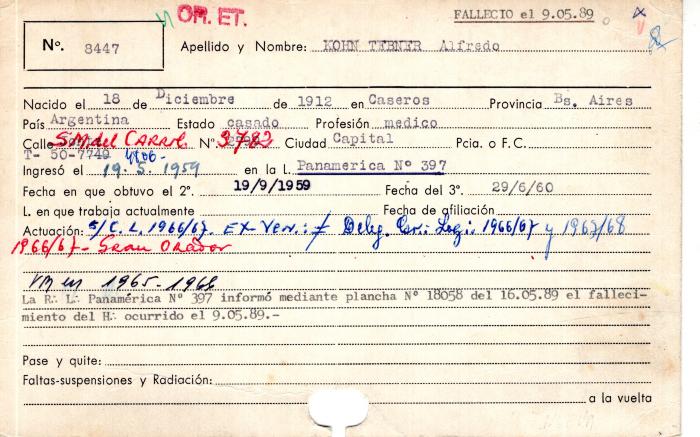 OM. ET.
FALLECIO el 9.05.89
Nº. 8447
Apellido y Nombre: KOHN TEBNER Alfredo
Nacido el 18 de Diciembre de 1912 en Caseros Provincia Bs. Aires
País Argentina Estado casado Profesión medico
Calle S.M. del CARRIL Nº 3782 Ciudad Capital Pcia. o F.C.
T- 50-7749 4806-
Ingresó el 19.5.1959 en la L. Panamerica Nº 397
Fecha en que obtuvo el 2º. 19/9/1959 Fecha del 3º. 29/6/60
L. en que trabaja actualmente Fecha de afiliación
Actuación: S/C. L. 1966/67. Ex Ven.: Deleg. Gr.: Log.: 1966/67 y 1967/68
1966/67- Gran Orador
VM en 1965-1966
La R.·. L.·. Panamérica Nº 397 informó mediante plancha Nº 18058 del 16.05.89 el falleci-
miento del H.·. ocurrido el 9.05.89.-
Pase y quite:
Faltas-suspensiones y Radiación:
a la vuelta